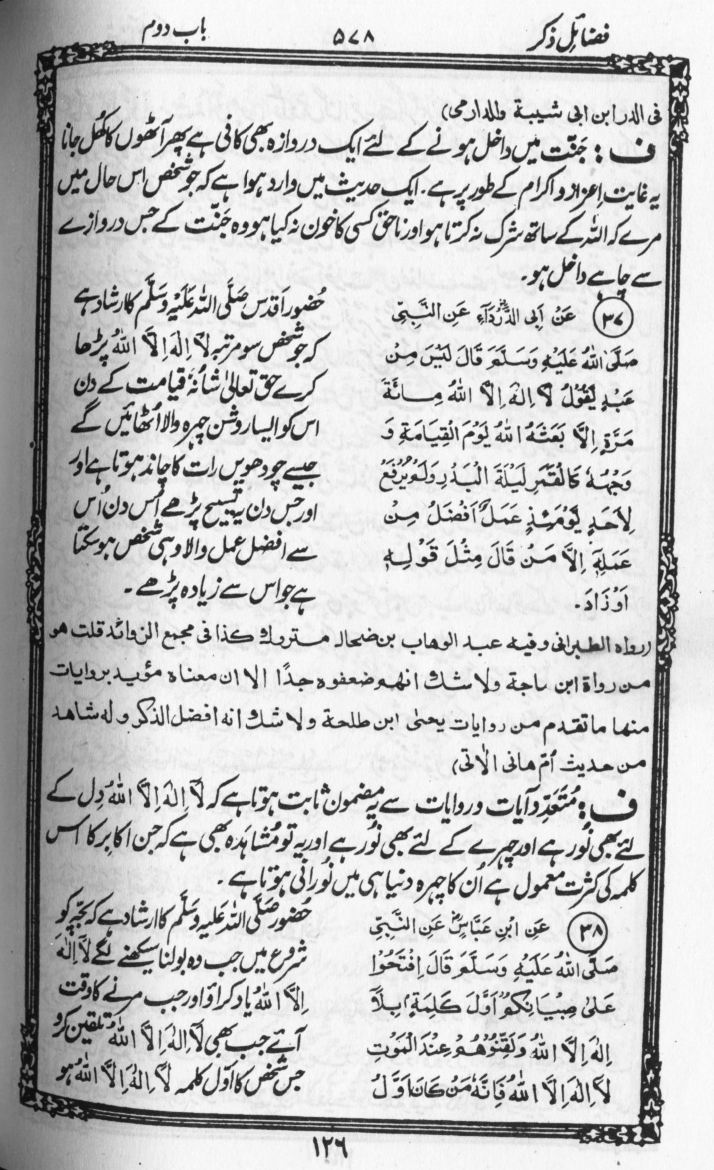 فضائل ذکر
۵۷۸
باب دوم
فی الدر ابن ابی شیبة والدارمی)
ف: جنّت میں داخل ہونے کے لئے ایک دروازہ بھی کافی ہے پھر آٹھوں کا کھل جانا
یہ غایت اعزاز و اکرام کے طور پر ہے۔ ایک حدیث میں وارد ہوا ہے کہ جو شخص اس حال میں
مرے کہ اللہ کے ساتھ شرک نہ کرتا ہو اور ناحق کسی کا خون نہ کیا ہو وہ جنّت کے جس دروازے
سے چاہے داخل ہو۔
(۳۷) عَنْ اَبِی الدَّرْدَاءِ عَنِ النَّبِیِّ
صَلَّی اللهُ عَلَیْهِ وَسَلَّمَ قَالَ لَیْسَ مِنْ
عَبْدٍ یَقُوْلُ لَآ اِلٰهَ اِلَّا اللهُ مِائَةَ
مَرَّةٍ اِلَّا بَعَثَهُ اللهُ یَوْمَ الْقِیَامَةِ وَ
وَجْهُهٗ کَالْقَمَرِ لَیْلَةَ الْبَدْرِ وَلَمْ یُرْفَعْ
لِاَحَدٍ یَوْمَئِذٍ عَمَلٌ اَفْضَلُ مِنْ
عَمَلِهٖ اِلَّا مَنْ قَالَ مِثْلَ قَوْلِهٖ
اَوْ زَادَ۔
حضور اقدس صَلَّی اللہُ عَلَیْہِ وَسَلَّم کا ارشاد ہے
کہ جو شخص سو مرتبہ لَا اِلٰهَ اِلَّا اللهُ پڑھا
کرے حق تعالیٰ شانُہٗ قیامت کے دن
اس کو ایسا روشن چہرہ والا اٹھائیں گے
جیسے چودھویں رات کا چاند ہوتا ہے اور
اور جس دن یہ تسبیح پڑھے اُس دن اُس
سے افضل عمل والا وہی شخص ہو سکتا
ہے جو اس سے زیادہ پڑھے۔
(رواه الطبرانی وفیه عبد الوهاب بن ضحاك متروك كذا فی مجمع الزوائد قلت هو
من رواة ابن ماجة ولا شك انهم ضعفوه جدًا الا ان معناه مؤید بروایات
منها ما تقدم من روایات یحیٰی ابن طلحة ولا شك انه افضل الذكر وله شاهد
من حدیث اُمّ هانی الاٰتی)
ف: مُتَعَدِّد آیات و روایات سے یہ مضمون ثابت ہوتا ہے کہ لَا اِلٰهَ اِلَّا اللهُ دِل کے
لئے بھی نُور ہے اور چہرے کے لئے بھی نُور ہے اور یہ تو مُشاہَدہ بھی ہے کہ جن اکابر کا اس
کلمہ کی کثرت معمول ہے اُن کا چہرہ دنیا ہی میں نُورانی ہوتا ہے۔
(۳۸) عَنِ ابْنِ عَبَّاسٍ عَنِ النَّبِیِّ
صَلَّی اللهُ عَلَیْهِ وَسَلَّمَ قَالَ افْتَحُوْا
عَلٰی صِبْیَانِکُمْ اَوَّلَ کَلِمَةٍ بِلَآ
اِلٰهَ اِلَّا اللهُ وَلَقِّنُوْهُمْ عِنْدَ الْمَوْتِ
لَآ اِلٰهَ اِلَّا اللهُ فَاِنَّهٗ مَنْ کَانَ اَوَّلُ
حُضور صَلَّی اللہ علیہ وسَلَّم کا ارشاد ہے کہ بچّہ کو
شروع میں جب وہ بولنا سیکھنے لگے لَا اِلٰهَ
اِلَّا اللهُ یاد کراؤ اور جب مرنے کا وقت
آئے جب بھی لَا اِلٰهَ اِلَّا اللهُ تلقین کرو
جس شخص کا اوّل کلمہ لَا اِلٰهَ اِلَّا اللهُ ہو
۱۲۶